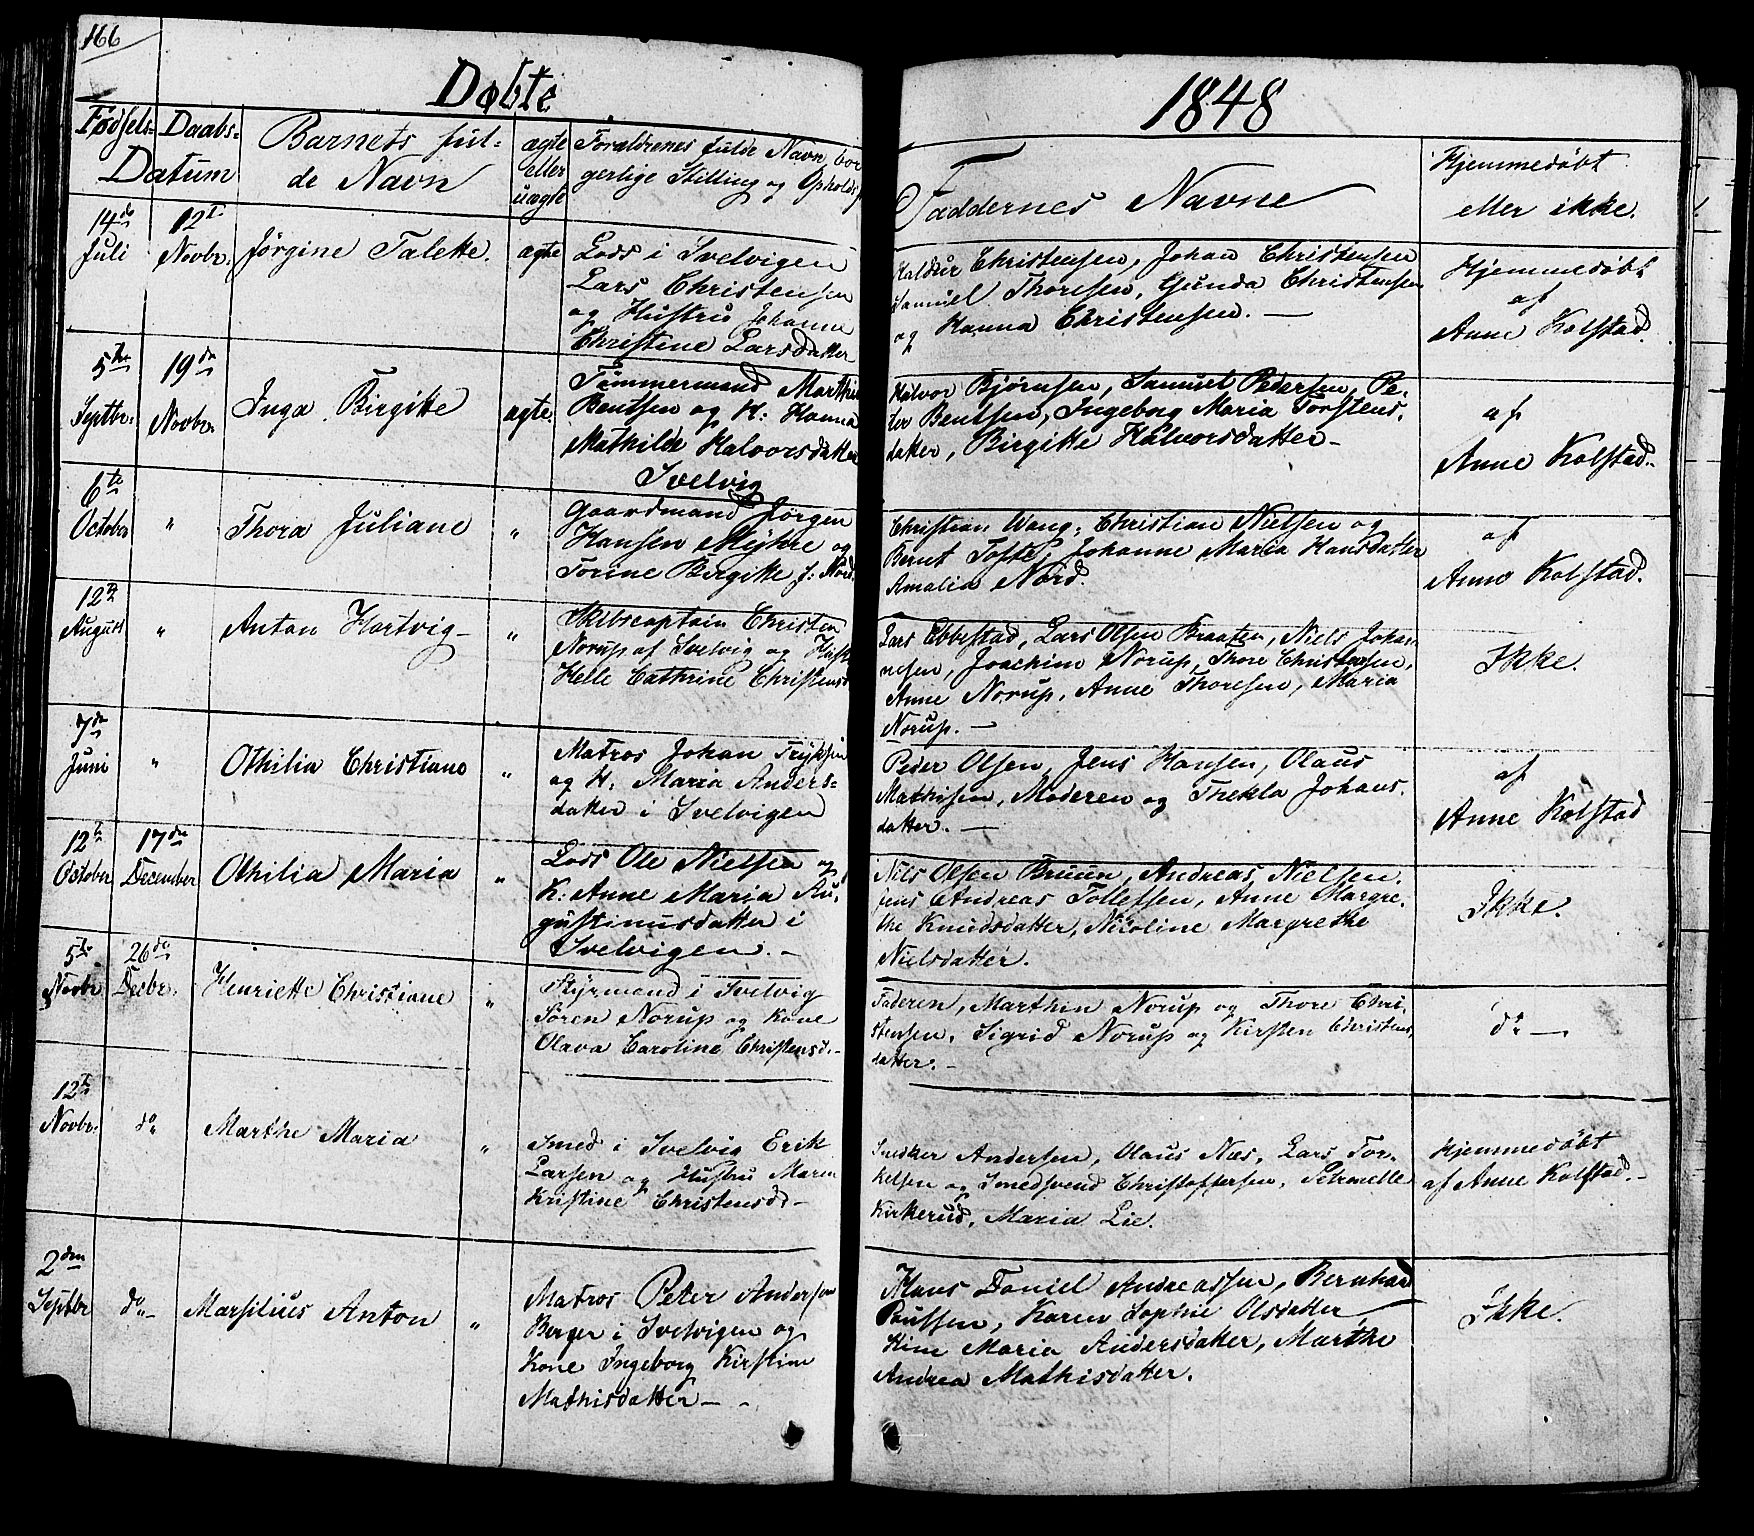 166
Døbte
1848
Fødsels= Daabs=
Datum
Barnets ful=
de Navn
ægte
eller
uægte
Forældrenes fulde Navn, bor
gerlige Stilling og Opholds
Faddernes Navne
Hjemmedøbt
eller ikke.
14de
Juli
12te
Novbr:
Jørgine Talette.
ægte
Lods i Svelvigen
Lars Christensen
og Hustru Johanne
Christine Larsdatter
Christensen, Johan Christensen
Samuel Thoresen, Gunda Christensen
og Hanna Christensen. —
Hjemmedøbt
af
Anne Kolstad.
5te
Septbr:
19de
Novbr:
Inga Birgitte
ægte.
Tømmermand Marthin
Bentsen og H: Hanna
Mathilde Halvorsdatter
Svelvig
Halvor Bjørnsen, Samuel Pedersen, Pe=
ter Bentsen, Ingeborg Maria Torstens=
datter, Birgitte Halvorsdatter—
af
Anne Kolstad.
6te
October
"
Thora Juliane
"
Gaardmand Jørgen
Hansen Myhre og
Torine Birgitte f: Nord.
Christian Wang, Christian Nielsen og
Bernt Tofte, Johanne Maria Hansdatter
Amalia Nord.
af
Anne Kolstad.
12te
August
"
Anton Hartvig—
"
Skibscaptain Christen
Norup af Svelvig og Hust
Helle Cathrine Christensd
Lars Ebbestad, Lars Olsen Braaten, Niels Johan=
nesen, Joachim Norup, Thore Christensen,
Anne Norup, Anne Thoresen, Maria
Norup. —
Ikke.
7de
Juni
"
Othilia Christiane
"
Matros Johan
og H: Maria Anders=
datter i Svelvigen
Peder Olsen, Jens Hansen, Olaus
Mathisen, Moderen og Thekla Johans=
datter. —
af
Anne Kolstad
12te
October
17de
December
Othilia Maria
"
Lods Ole Nielsen og
K: Anne Maria Au=
gustinusdatter i
Svelvigen. —
Nils Olsen Bruun, Andreas Nielsen,
Jens Andreas Tollefsen, Anne Margre=
the Knudsdatter, Nicoline Margrethe
Nielsdatter.
Ikke.
5te
Novbr
26de
Decbr.
Henriette Christiane
"
Styrmand i Svelvig
Søren Norup og Kone
Olava Caroline Christensd.—
Faderen, Marthin Norup og Thore Chri=
stensen, Sigrid Norup og Kirsten Christens
datter. —
do —
12te
Novbr:
do
Marthe Maria
"
Smed i Svelvig Erik
Larsen og Hustru Maren
Kristine Christensd—
Snedker Andersen, Olaus Næs, Lars Tor=
kelsen og Smedsvend Christoffersen, Petronelle
Kirkerud, Maria Lie.
Hjemmedøbt
af Anne Kolstad.—
2den
Septbr
do—
Marsilius Anton
"
Matros Peter Andersen
Berger i Svelvigen og
Kone Ingeborg Kirstine
Mathisdatter— —
Hans Daniel Andreassen, Bernhard
Paulsen, Karen Sophie Olsdatter,
Maria Andersdatter, Marthe
Andrea Mathisdatter.
Ikke.